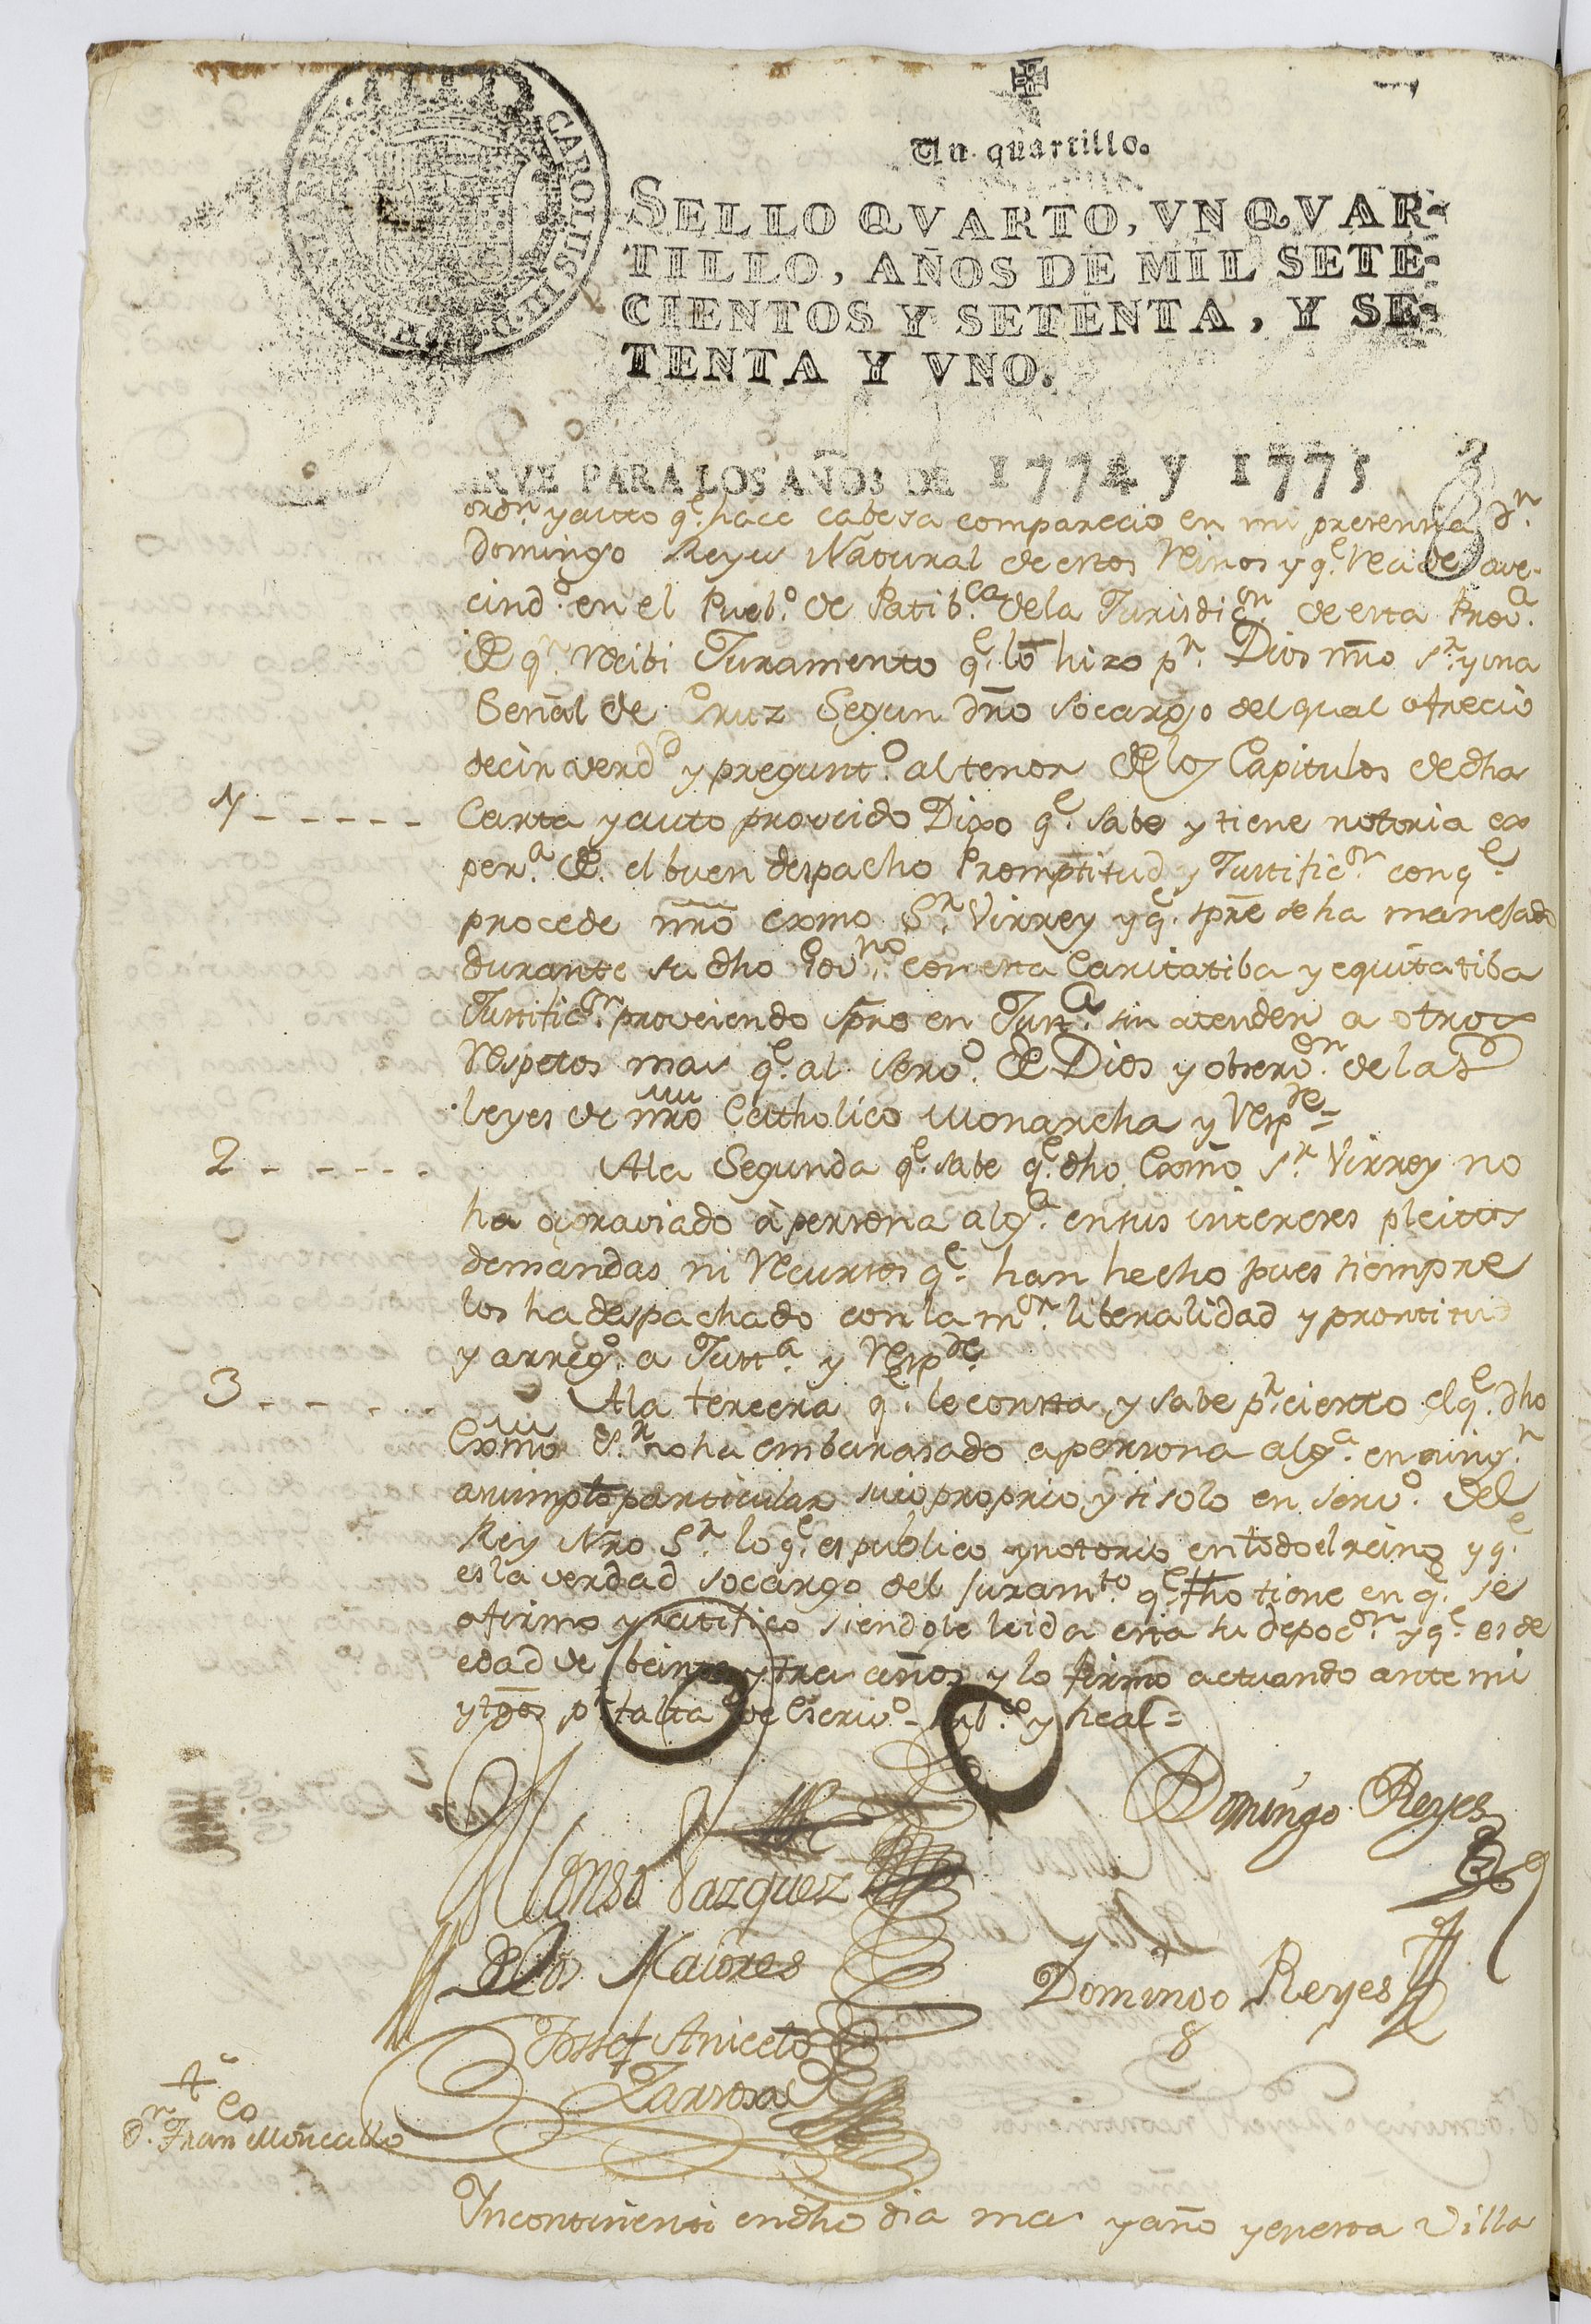 Un quartillo.
SELLO QVARTO, VN QVAR-
TILLO, AÑOS DE MIL SETE-
CIENTOS Y SETENTA, Y SE-
TENTA Y VNO.
CAROLUS III D
RVE PARA LOS AÑOS DE 1774 y 1775
3
ordn. y auto qe. hace cabesa comparecio en mi presenzia Dn.
Domingo Reyes Natural de estos Reinos y qe. Recide ave-
cindo. en el Puebo. de Patibca. de la Jurisdicon. de esta Prova.
de qn. Recibi Juramento qe. lo hizo pr. Dios nro. Sr. y una
Señal de Cruz Segun dro socargo del qual ofrecio
decir verdd. y pregunto. al tenor de los Capitulos de dha
1 - - - - - Carta y auto proveido Dixo qe. sabe y tiene notoria ex
pera. de el buen despacho Promptitud y Justificon. con qe.
procede nro exmo Sr. Virrey y qe. spre se ha manejado
durante su dho Govno. con esta Caritatiba y equitatiba
Justificon. proveiendo spre en Justa. sin atender a otros
Respetos mas qe. al servo. de Dios y observon. de las
leyes de nro Catholico Monarcha y Respde. =
2 - - - - - A la Segunda qe. sabe qe. dho Exmo Sr. Virrey no
ha agraviado à persona alga. en sus intereses pleitos
demandas ni Recursos qe. han hecho pues siempre
los ha despachado con la mor. liberalidad y prontitud
y arrego. a Justa. y Respde.
3 - - - - - A la tercera qe. le consta y sabe pr. cierto el qe. dho
Exmo Sr. no ha embarasado a persona alga. en ningn.
asumpto particular suio proprio y si solo en servo. del
Rey Nro Sr. lo qe. es publico y notorio en todo el reino y qe.
es la verdad socargo del juramto. qe. fho tiene en qe. se
afirmo y ratifico siendole leida esta su depocon. y qe. es de
edad de beinte y tres años y lo firmo actuando ante mi
y tgos pr. falta de Escrivo. Pubco. y Real =
Domingo Reyes
Alonso Vazquez
de los Maiores
Domingo Reyes
Jossef Aniceto
Larrosa
tto.
Dn. Franco Moncallo
Yncontinenti en dho dia mes y año y en esta Villa